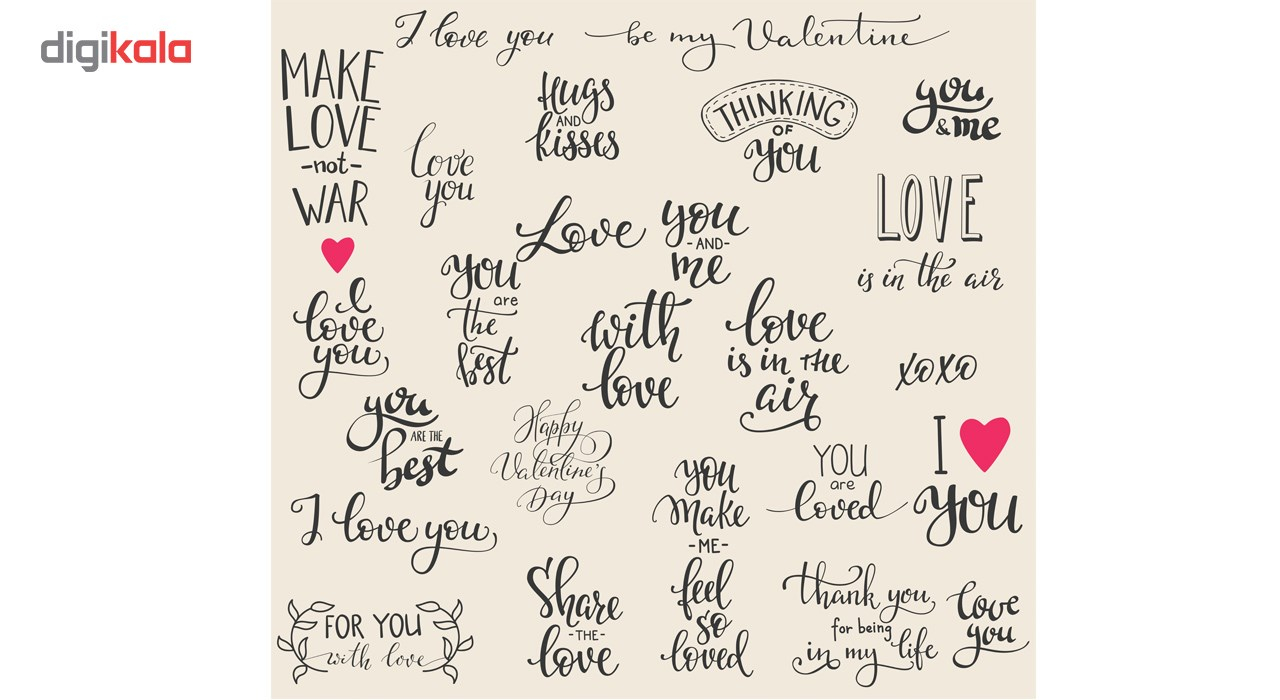 digikala
I love you
be my Valentine
MAKE
LOVE
-not-
WAR
Hugs
AND
kisses
THINKING
OF
you
you
&me
love
you
Love
you
-AND-
me
LOVE
is in the air
I
love
you
you
are
the
best
with
love
love
is in the
air
xoxo
you
ARE THE
best
Happy
Valentine's
Day
I love you
you
make
-ME-
feel
so
loved
YOU
are
loved
I
you
FOR YOU
with love
Share
-THE-
love
thank you
for being
in my life
love
you